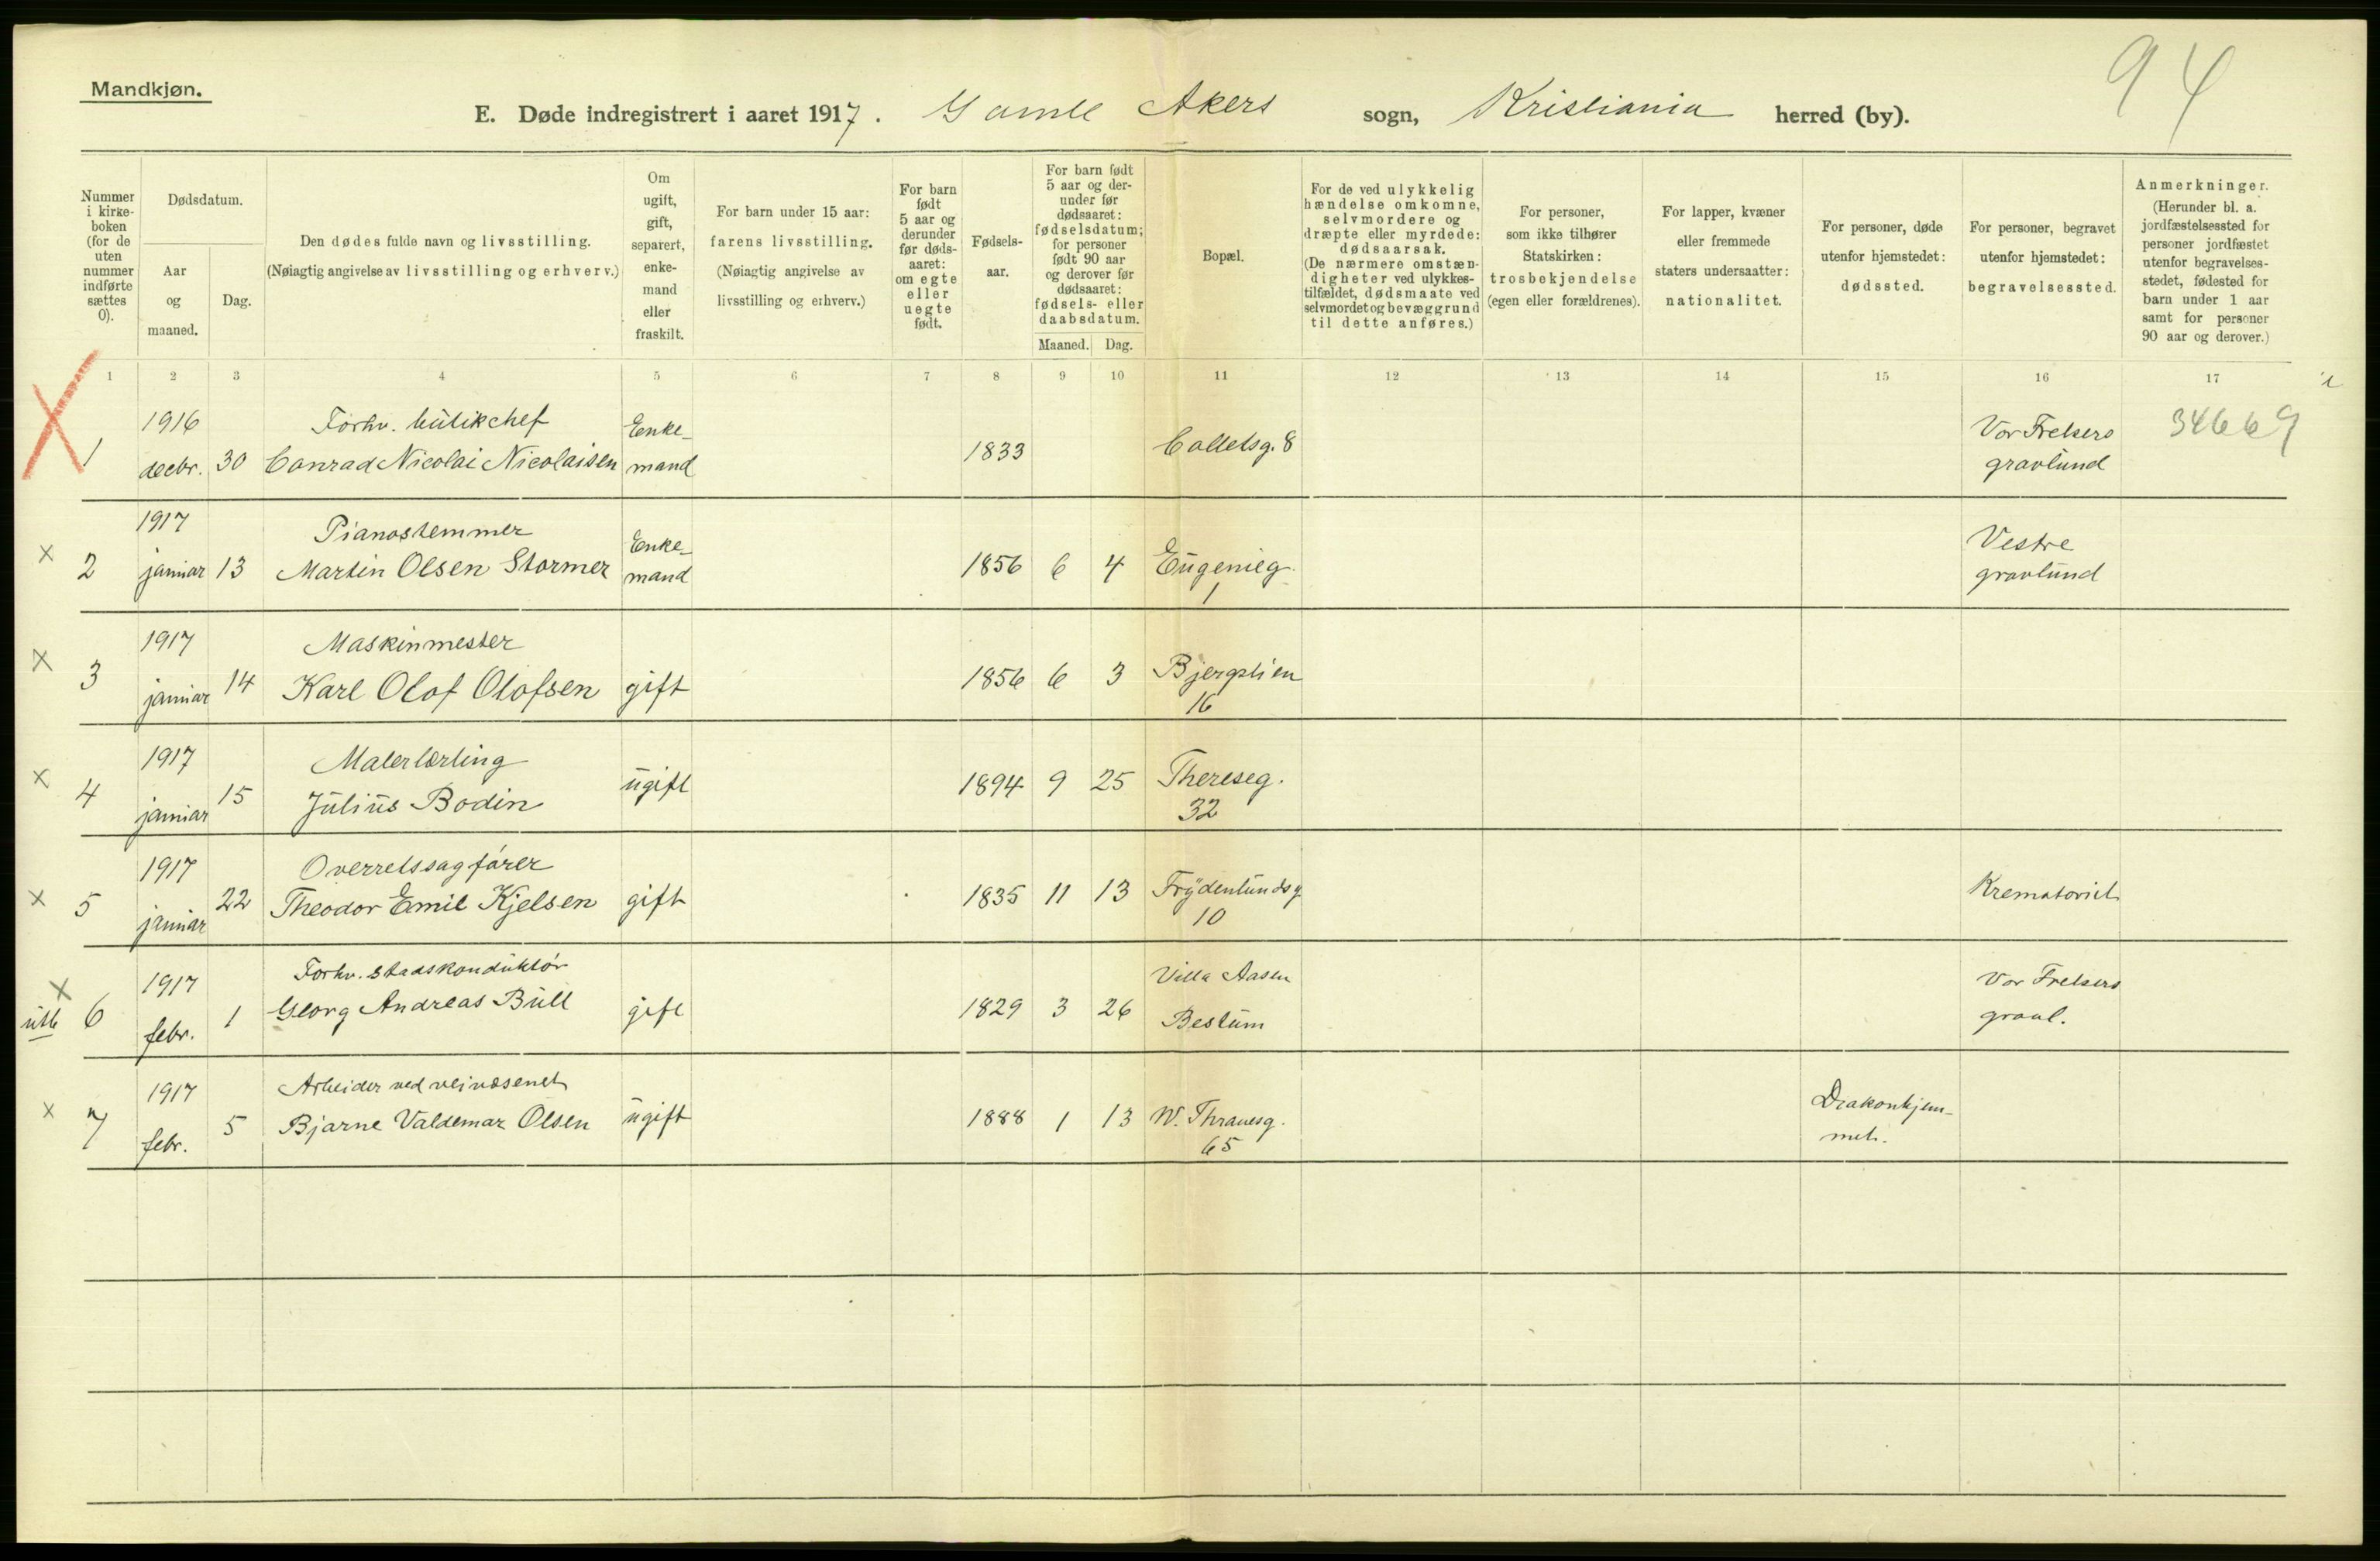 Mandkjøn.
94
E. Døde indregistrert i aaret 1917. Gamle Akers sogn, Kristiania herred (by).
Nummer i kirke- boken (for de uten nummer indførte sættes 0).
Dødsdatum.
Aar og maaned.
Dag.
Den dødes fulde navn og livsstilling.
(Nøiagtig angivelse av livsstilling og erhverv.)
Om ugift, gift, separert, enke- mand eller fraskilt.
For barn under 15 aar: farens livsstilling.
(Nøiagtig angivelse av livsstilling og erhverv.)
For barn født 5 aar og derunder før døds- aaret: om egte eller uegte født.
Fødsels- aar.
For barn født 5 aar og der- under før dødsaaret: fødselsdatum; for personer født 90 aar og derover før dødsaaret: fødsels- eller daabsdatum.
Maaned. Dag.
Bopæl.
For de ved ulykkelig hændelse omkomne, selvmordere og dræpte eller myrdede: dødsaarsak.
(De nærmere omstæn- digheter ved ulykkes- tilfældet, dødsmaate ved selvmordet og bevæggrund til dette anføres.)
For personer, som ikke tilhører Statskirken: trosbekjendelse (egen eller forældrenes).
For lapper, kvæner eller fremmede staters undersaatter: nationalitet.
For personer, døde utenfor hjemstedet: dødssted.
For personer, begravet utenfor hjemstedet: begravelsessted.
Anmerkninger.
(Herunder bl. a. jordfæstelsessted for personer jordfæstet utenfor begravelses- stedet, fødested for barn under 1 aar samt for personer 90 aar og derover.)
1 2 3 4 5 6 7 8 9 10 11 12 13 14 15 16 17
X
1916 Forhv. butikchef Enke- Vor Frelsers 34669
1 decbr. 30 Conrad Nicolai Nicolaisen mand 1833 Colletsg. 8 gravlund
1917 Pianostemmer Enke- Vestre
x 2 januar 13 Martin Olsen Stormer mand 1856 6 4 Eugenieg. gravlund
1
1917 Maskinmester
x 3 januar 14 Karl Olof Olofsen gift 1856 6 3 Bjergslien
16
1917 Malerlærling
x 4 januar 15 Julius Bodin ugift 1894 9 25 Thereseg.
32
1917 Overretssagfører
x 5 januar 22 Theodor Emil Kjelsen gift 1835 11 13 Frydenlundsg. Krematoriet
10
x 1917 Forhv. stadskonduktør Villa Aasen Vor Frelsers
6 febr. 1 Georg Andreas Bull gift 1829 3 26 Bestum gravl.
1917 Arbeider ved veivæsenet Diakonhjem-
x 7 febr. 5 Bjarne Valdemar Olsen ugift 1888 1 13 W. Thranesg. met.
65